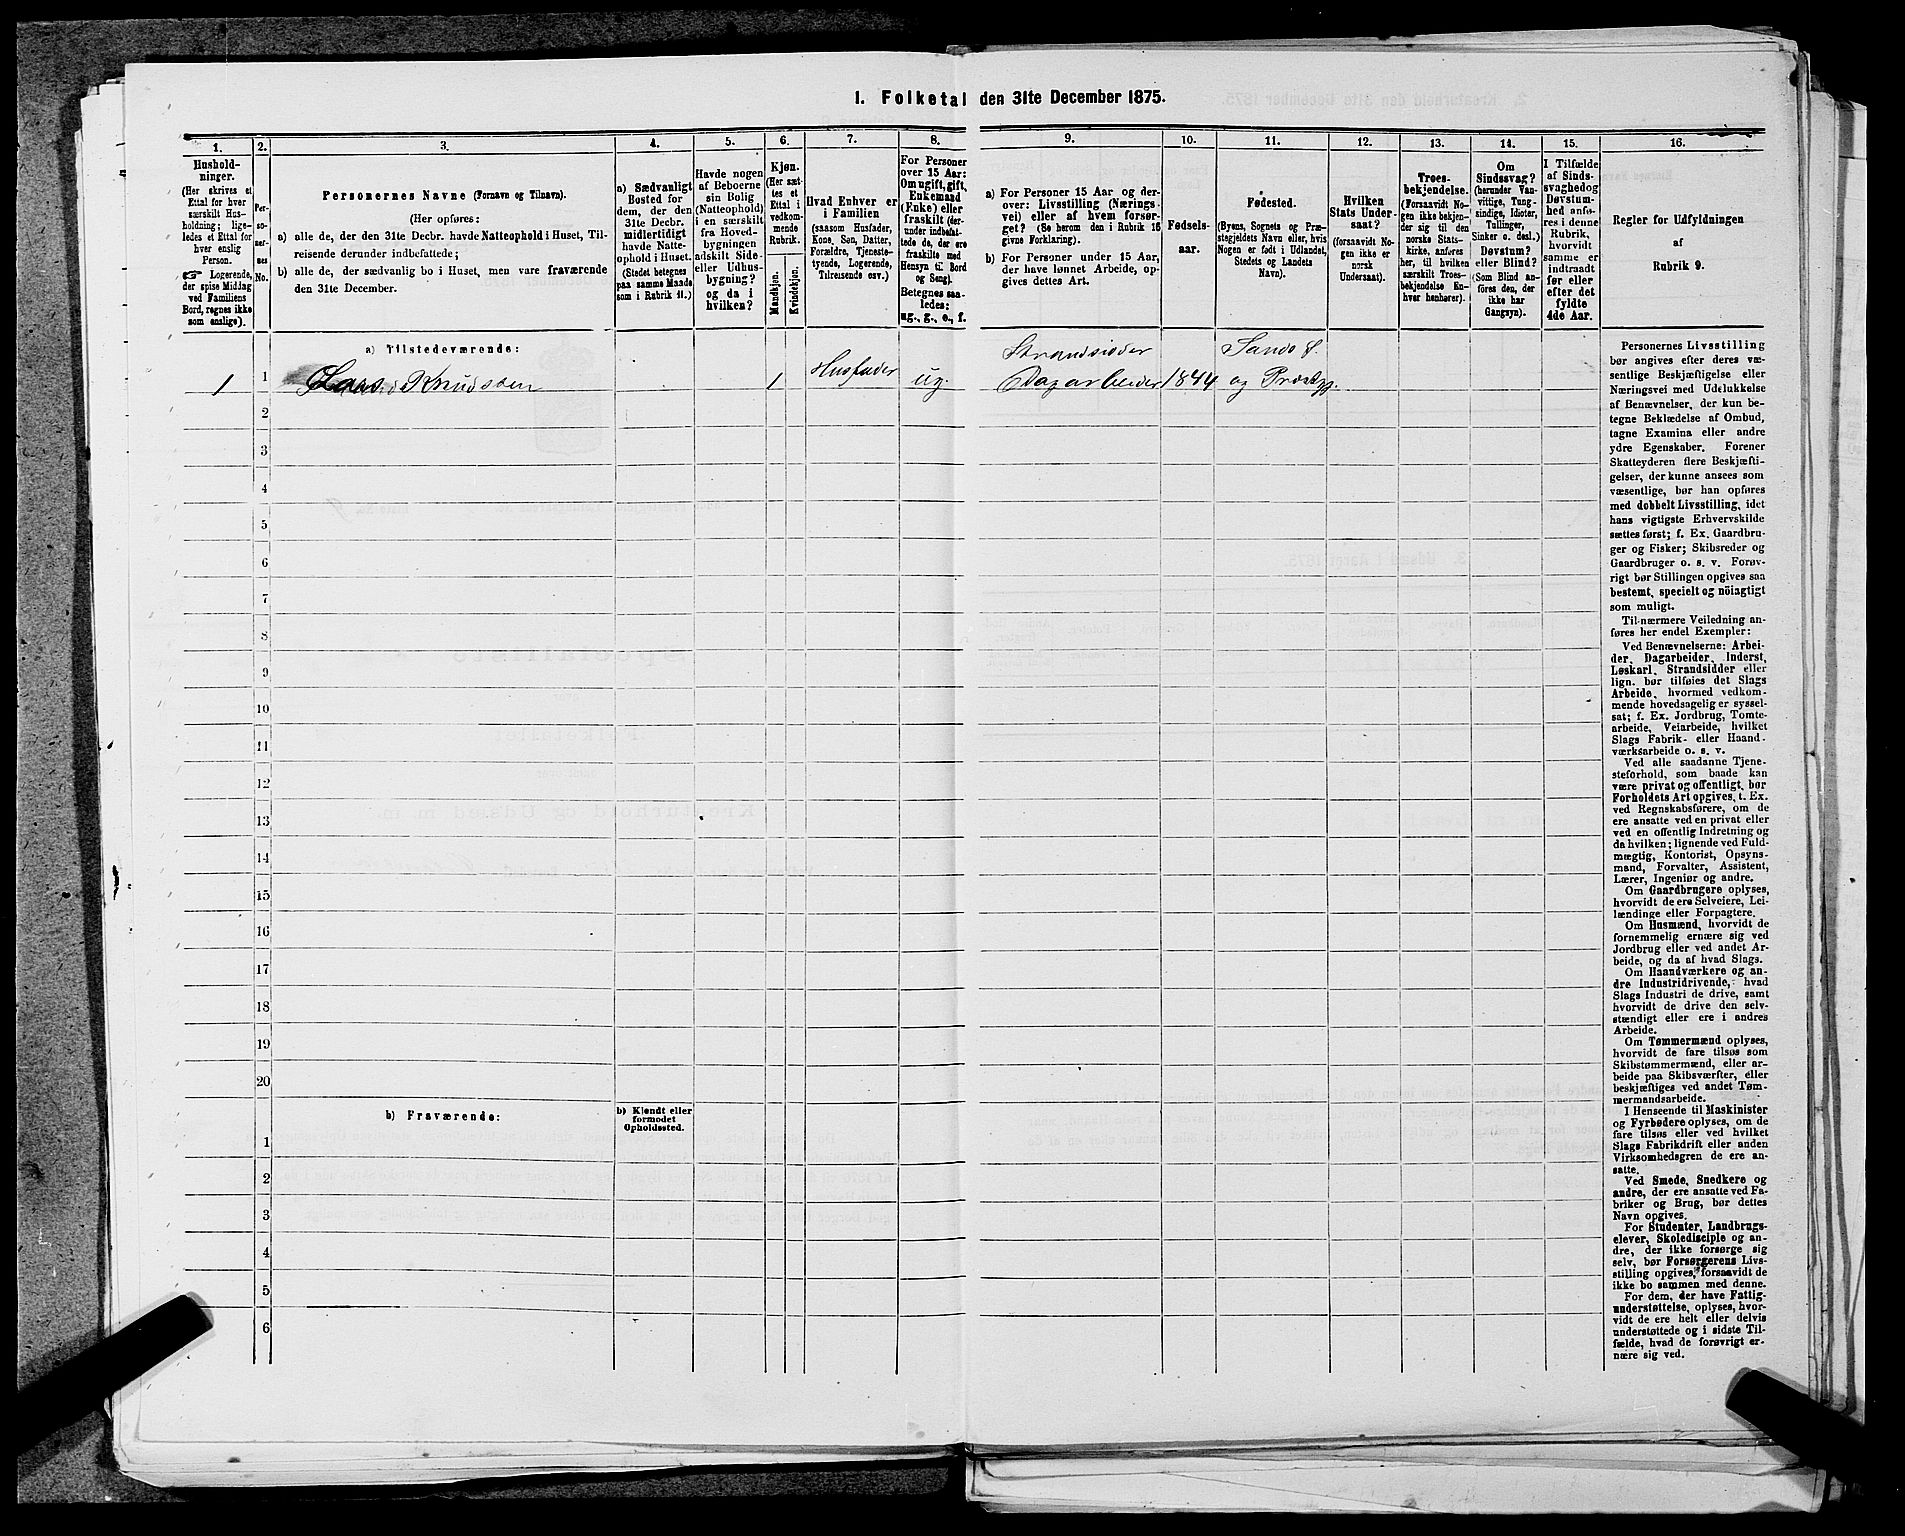 1. Folketal den 31te December 1875.
1.
Hushold-
ninger.
(Her skrives et
Ettal for hver
særskilt Hus-
holdning; lige-
ledes et Ettal for
hver enslig
Person.
☞ Logerende,
der spise Middag
ved Familiens
Bord, regnes ikke
som enslige).
2.
Per-
so-
ner-
nes
No.
3.
Personernes Navne (Fornavn og Tilnavn).
(Her opføres:
a) alle de, der den 31te Decbr. havde Natteophold i Huset, Til-
reisende derunder indbefattede;
b) alle de, der sædvanlig bo i Huset, men vare fraværende
den 31te December.
4.
a) Sædvanligt
Bosted for
dem, der den
31te Decbr.
midlertidigt
havde Natte-
ophold i Huset.
(Stedet betegnes
paa samme Maade
som i Rubrik 11.)
5.
Havde nogen
af Beboerne
sin Bolig
(Natteophold)
i en særskilt
fra Hoved-
bygningen
adskilt Side-
eller Udhus-
bygning?
og da i
hvilken?
6.
Kjøn.
(Her sæt-
tes et
Ettal i
vedkom-
mende
Rubrik.
Mandkjøn.
Kvindekjøn.
7.
Hvad Enhver er
i Familien
(saasom Husfader,
Kone, Søn, Datter,
Forældre, Tjeneste-
tyende, Logerende,
Tilreisende osv.)
8.
For Personer
over 15 Aar:
Om ugift, gift,
Enkemand
(Enke) eller
fraskilt (der-
under indbefat-
tede de, der ere
fraskilte med
Hensyn til Bord
og Seng).
Betegnes saa-
ledes:
ug., g., e., f.
9.
a) For Personer 15 Aar og der-
over: Livsstilling (Nærings-
vei) eller af hvem forsør-
get? (Se herom den i Rubrik 16
givne Forklaring).
b) For Personer under 15 Aar,
der have lønnet Arbeide, op-
gives dettes Art.
10.
Fødsels-
aar.
11.
Fødested.
(Byens, Sognets og Præ-
stegjeldets Navn eller, hvis
Nogen er født i Udlandet,
Stedets og Landets
Navn).
12.
Hvilken
Stats Under-
saat?
(forsaavidt No-
gen ikke er
norsk
Undersaat).
13.
Troes-
bekjendelse.
(Forsaavidt No-
gen ikke bekjen-
der sig til den
norske Stats-
kirke, anføres
her, til hvilken
særskilt Troes-
bekjendelse En-
hver henhører).
14.
Om
Sindssvag?
(herunder Van-
vittige, Tung-
sindige, Idioter,
Tullinger,
Sinker o. desl.)
Døvstum?
eller Blind?
(Som Blind an-
føres den, der
ikke har
Gangsyn).
15.
I Tilfælde
af Sinds-
svaghed og
Døvstum-
hed anfø-
res i denne
Rubrik,
hvorvidt
samme er
indtraadt
før eller
efter det
fyldte
4de Aar.
16.
Regler for Udfyldningen
af
Rubrik 9.
a) Tilstedeværende:
Strandsidder Sands S.
1 1 Knudsen 1 Husfader ug. Dagarbeider 1844 og Præstgj.
2
3
4
5
6
7
8
9
10
11
12
13
14
15
16
17
18
19
20
b) Fraværende:
b) Kjendt eller
formodet
Opholdssted.
1
2
3
4
5
6
Personernes Livsstilling
bør angives efter deres væ-
sentlige Beskjæftigelse eller
Næringsvei med Udelukkelse
af Benævnelser, der kun be-
tegne Beklædelse af Ombud,
tagne Examina eller andre
ydre Egenskaber. Forener
Skatteyderen flere Beskjæfti-
gelser, der kunne ansees som
væsentlige, bør han opføres
med dobbelt Livsstilling, idet
hans vigtigste Erhvervskilde
sættes først; f. Ex. Gaardbru-
ger og Fisker; Skibsreder og
Gaardbruger o. s. v. Forøv-
rigt bør Stillingen opgives saa
bestemt, specielt og nöiagtigt
som muligt.
Til nærmere Veiledning an-
føres her endel Exempler:
Ved Benævnelserne: Arbei-
der, Dagarbeider, Inderst,
Løskarl, Strandsidder eller
lign. bør tilføies det Slags
Arbeide, hvormed vedkom-
mende hovedsagelig er syssel-
sat; f. Ex. Jordbrug, Tomte-
arbeide, Veiarbeide, hvilket
Slags Fabrik- eller Haand-
værksarbeide o. s. v.
Ved alle saadanne Tjene-
steforhold, som baade kan
være privat og offentligt, bør
Forholdets Art opgives, t. Ex.
ved Regnskabsførere, om de
ere ansatte ved en privat eller
ved en offentlig Indretning og
da hvilken; lignende ved Fuld-
mægtig, Kontorist, Opsyns-
mand, Forvalter, Assistent,
Lærer, Ingeniør og andre.
Om Gaardbrugere oplyses,
hvorvidt de ere Selveiere, Lei-
lændinge eller Forpagtere.
Om Husmænd, hvorvidt de
fornemmelig ernære sig ved
Jordbrug eller ved andet Ar-
beide, og da af hvad Slags.
Om Haandværkere og an-
dre Industridrivende, hvad
Slags Industri de drive, samt
hvorvidt de drive den selv-
stændigt eller ere i andres
Arbeide.
Om Tømmermænd oplyses,
hvorvidt de fare tilsøs som
Skibstømmermænd, eller ar-
beide paa Skibsværfter, eller
beskjæftiges ved andet Tøm-
mermandsarbeide.
I Henseende til Maskinister
og Fyrbødere oplyses, om de
fare tilsøs eller ved hvilket
Slags Fabrikdrift eller anden
Virksomhedsgren de ere an-
satte.
Ved Smede, Snedkere og
andre, der ere ansatte ved Fa-
briker og Brug, bør dettes
Navn opgives.
For Studenter, Landbrugs-
elever, Skoledisciple og an-
dre, der ikke forsørge sig
selv, bør Forsørgerens Livs-
stilling opgives, forsaavidt de
ikke bo sammen med denne.
For dem, der have Fattig-
understøttelse, oplyses, hvor-
vidt de ere helt eller delvis
understøttede og i sidste Til-
fælde, hvad de forøvrigt er-
nære sig ved.